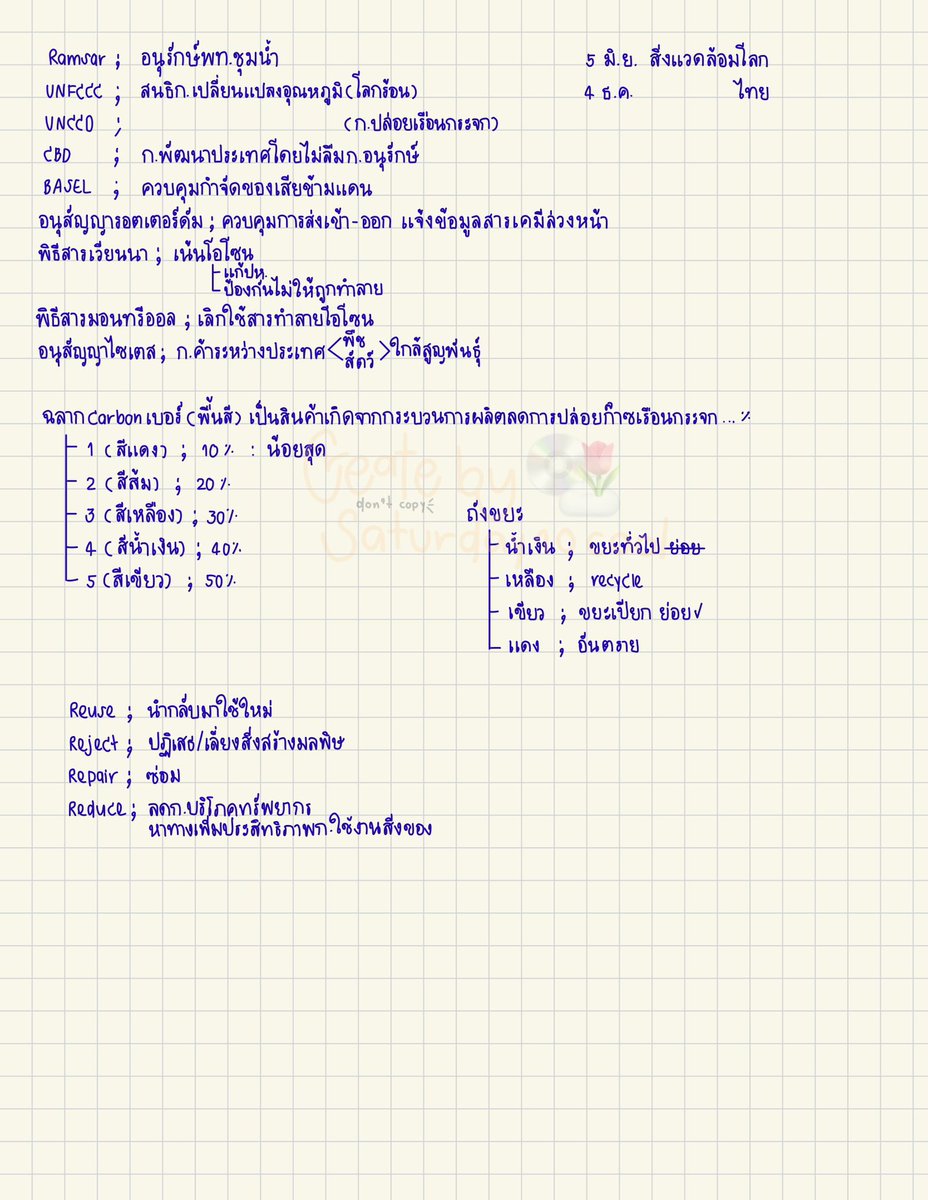 Ramsar ; อนุรักษ์พท.ชุมน้ำ
5 มิ.ย. สิ่งแวดล้อมโลก
UNFCCC ; สนธิก.เปลี่ยนแปลงอุณหภูมิ(โลกร้อน)
4 ธ.ค. ไทย
UNCCD ; (ก.ปล่อยเรือนกระจก)
CBD ; ก.พัฒนาประเทศโดยไม่ลืมก.อนุรักษ์
BASEL ; ควบคุมกำจัดของเสียข้ามแดน
อนุสัญญารอตเตอร์ดัม ; ควบคุมการส่งเข้า-ออก แจ้งข้อมูลสารเคมีล่วงหน้า
พิธีสารเวียนนา ; เน้นโอโซน
แก้ปห.
ป้องกันไม่ให้ถูกทำลาย
พิธีสารมอนทรีออล ; เลิกใช้สารทำลายโอโซน
อนุสัญญาไซเตส ; ก.ค้าระหว่างประเทศ < พืช สัตว์ > ใกล้สูญพันธุ์
ฉลาก Carbon เบอร์ (พื้นสี) เป็นสินค้าเกิดจากกระบวนการผลิตลดการปล่อยก๊าซเรือนกระจก ... %
1 (สีแดง) ; 10% : น้อยสุด
2 (สีส้ม) ; 20%
3 (สีเหลือง) ; 30%
4 (สีน้ำเงิน) ; 40%
5 (สีเขียว) ; 50%
Create by
don't copy
Saturday
ถังขยะ
น้ำเงิน ; ขยะทั่วไป ย่อย
เหลือง ; recycle
เขียว ; ขยะเปียก ย่อย✓
แดง ; อันตราย
Reuse ; นำกลับมาใช้ใหม่
Reject ; ปฏิเสธ/เลี่ยงสิ่งสร้างมลพิษ
Repair ; ซ่อม
Reduce ; ลดก.บริโภคทรัพยากร
หาทางเพิ่มประสิทธิภาพก.ใช้งานสิ่งของ